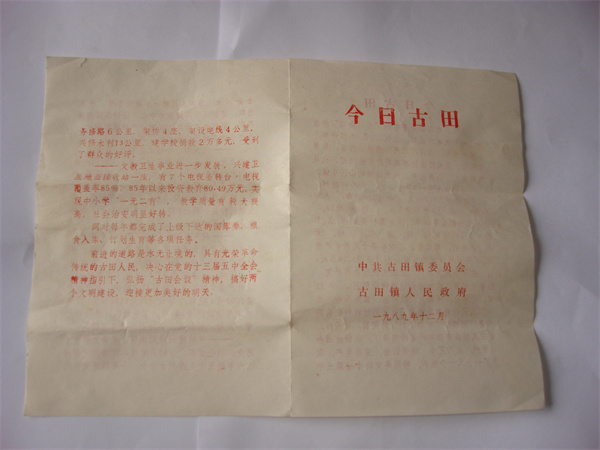 今日古田
中共古田镇委员会
古田镇人民政府
一九八九年十二月
冬修路6公里，架桥4座，架设电线4公里，
兴修水利19公里，建学校捐款2万多元，受到
了群众的好评。
——文教卫生事业进一步发展，兴建卫
有7个电视台转台，电视
复盖率85%，85年以来投资教育89·49万元，实
现中小学“一无二有”，教学质量有较大提
高，社会治安明显好转。
同时每年都完成了上级下达的国库券、粮
食入库、计划生育等各项任务。
前进的道路是永无止境的，具有光荣革命
传统的古田人民，决心在党的十三届五中全会
精神指引下，弘扬“古田会议”精神，搞好两
个文明建设，迎接更加美好的明天。